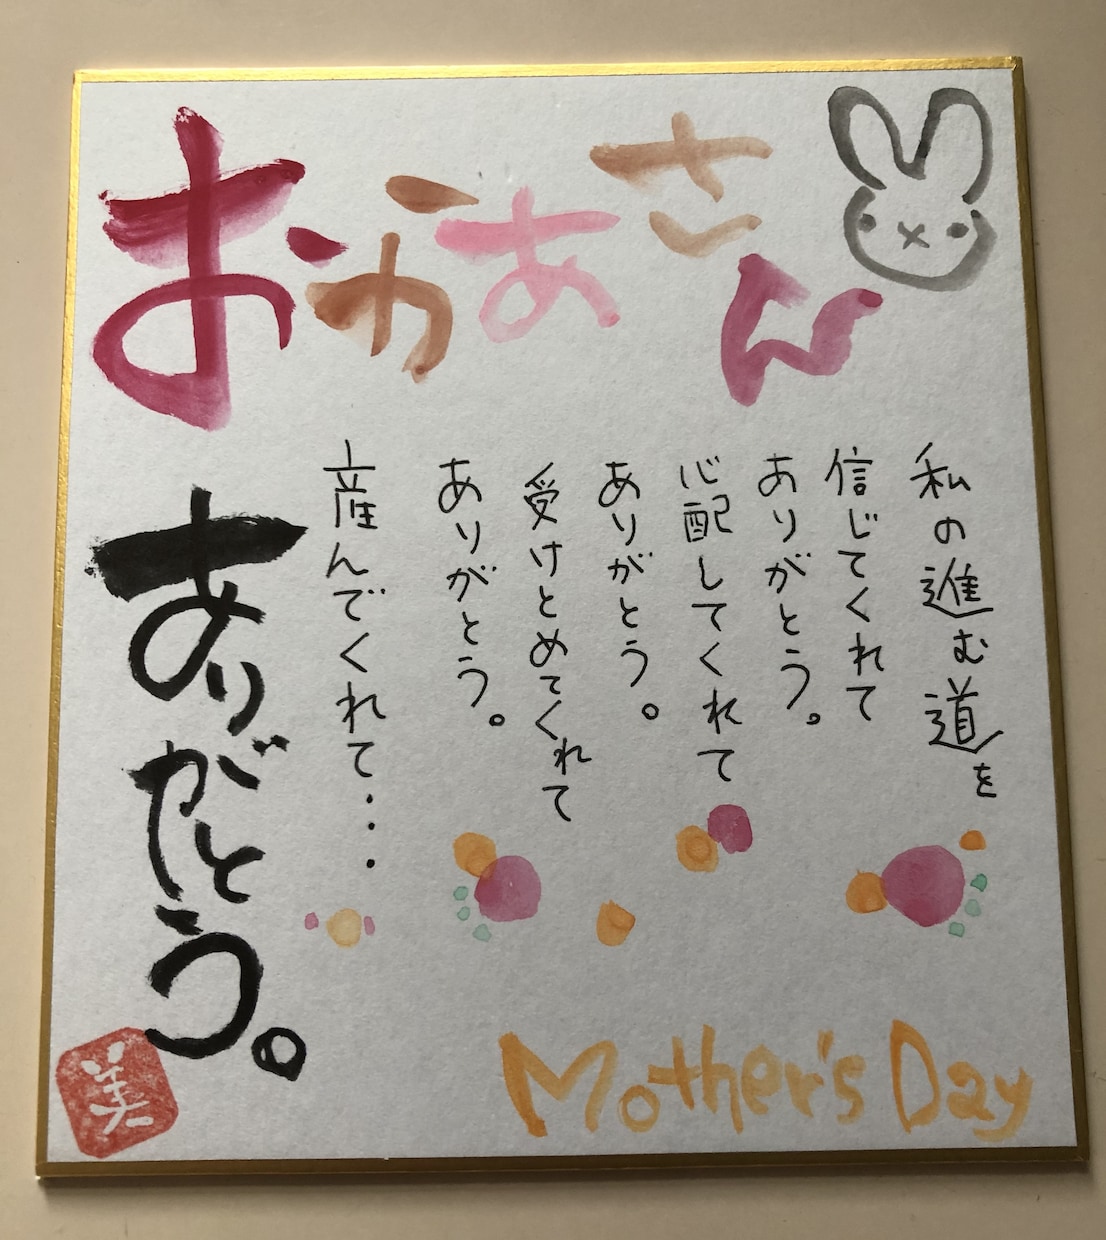 おかあさん
私の進む道を
信じてくれて
ありがとう。
心配してくれて
ありがとう。
受けとめてくれて
ありがとう。
産んでくれて...
ありがとう。
美
Mother's Day